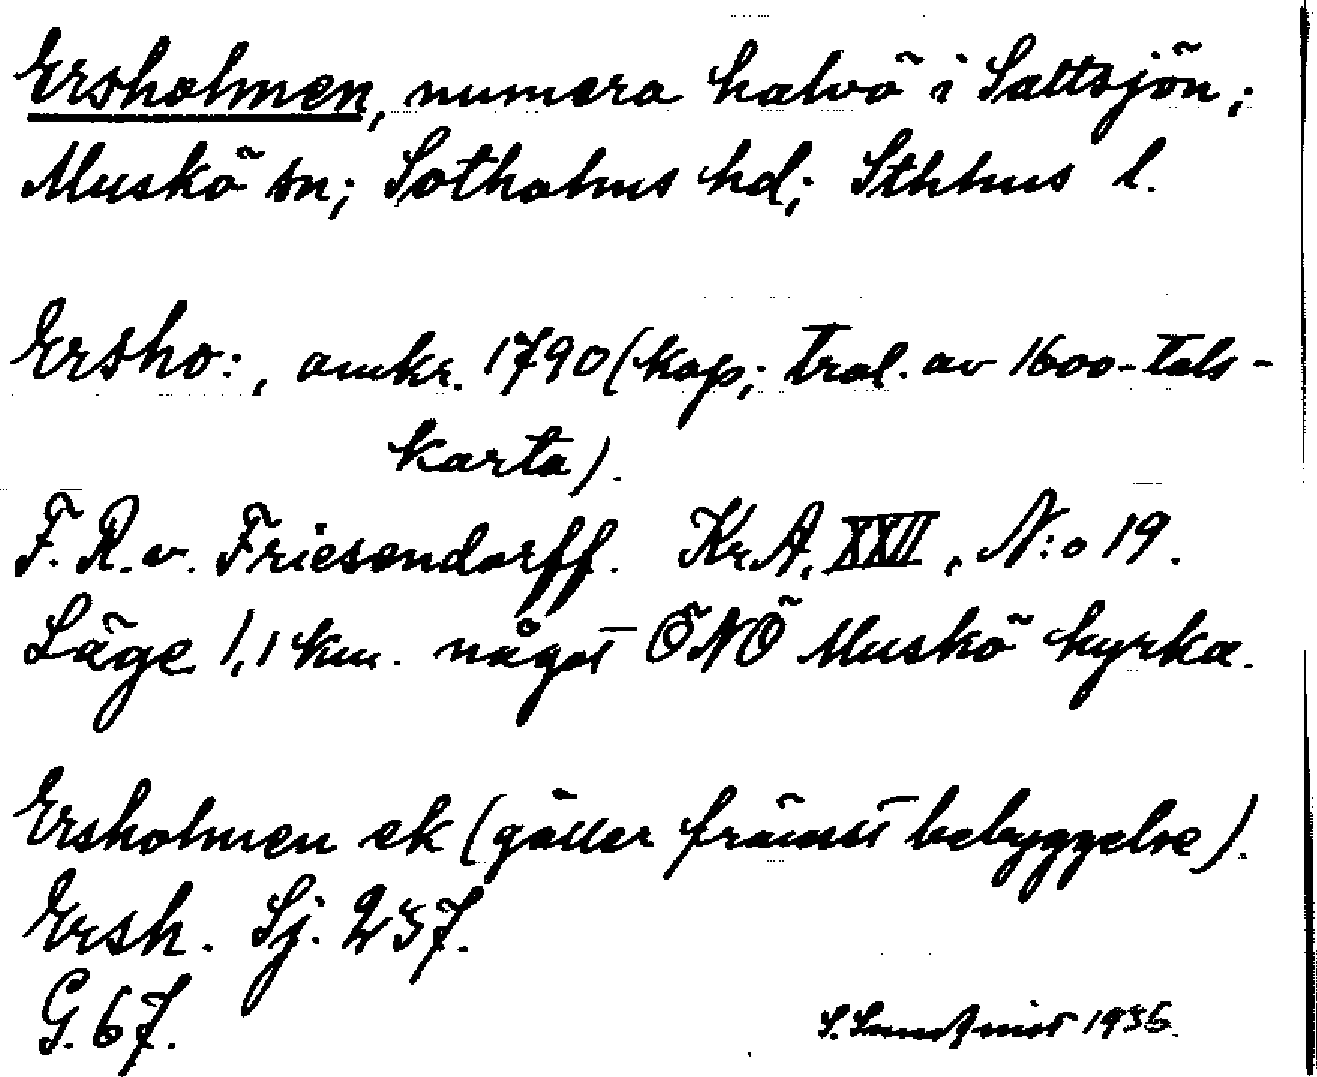 Ersholmen, numera halvö i Saltsjön;
Muskö sn; Sotholms hd; Sthlms l.
Ersho:, omkr. 1790 (kop; trol. av 1600-tals-
karta).
F. R. v. Friesendorff. Kr.A. XXII, N:o 19.
Läge 1,1 km. något ÖNÖ Muskö kyrka.
Ersholmen ek (gäller främst bebyggelse).
Ersh. Sj. 237.
G. 67.
S. Sundqvist 1935.